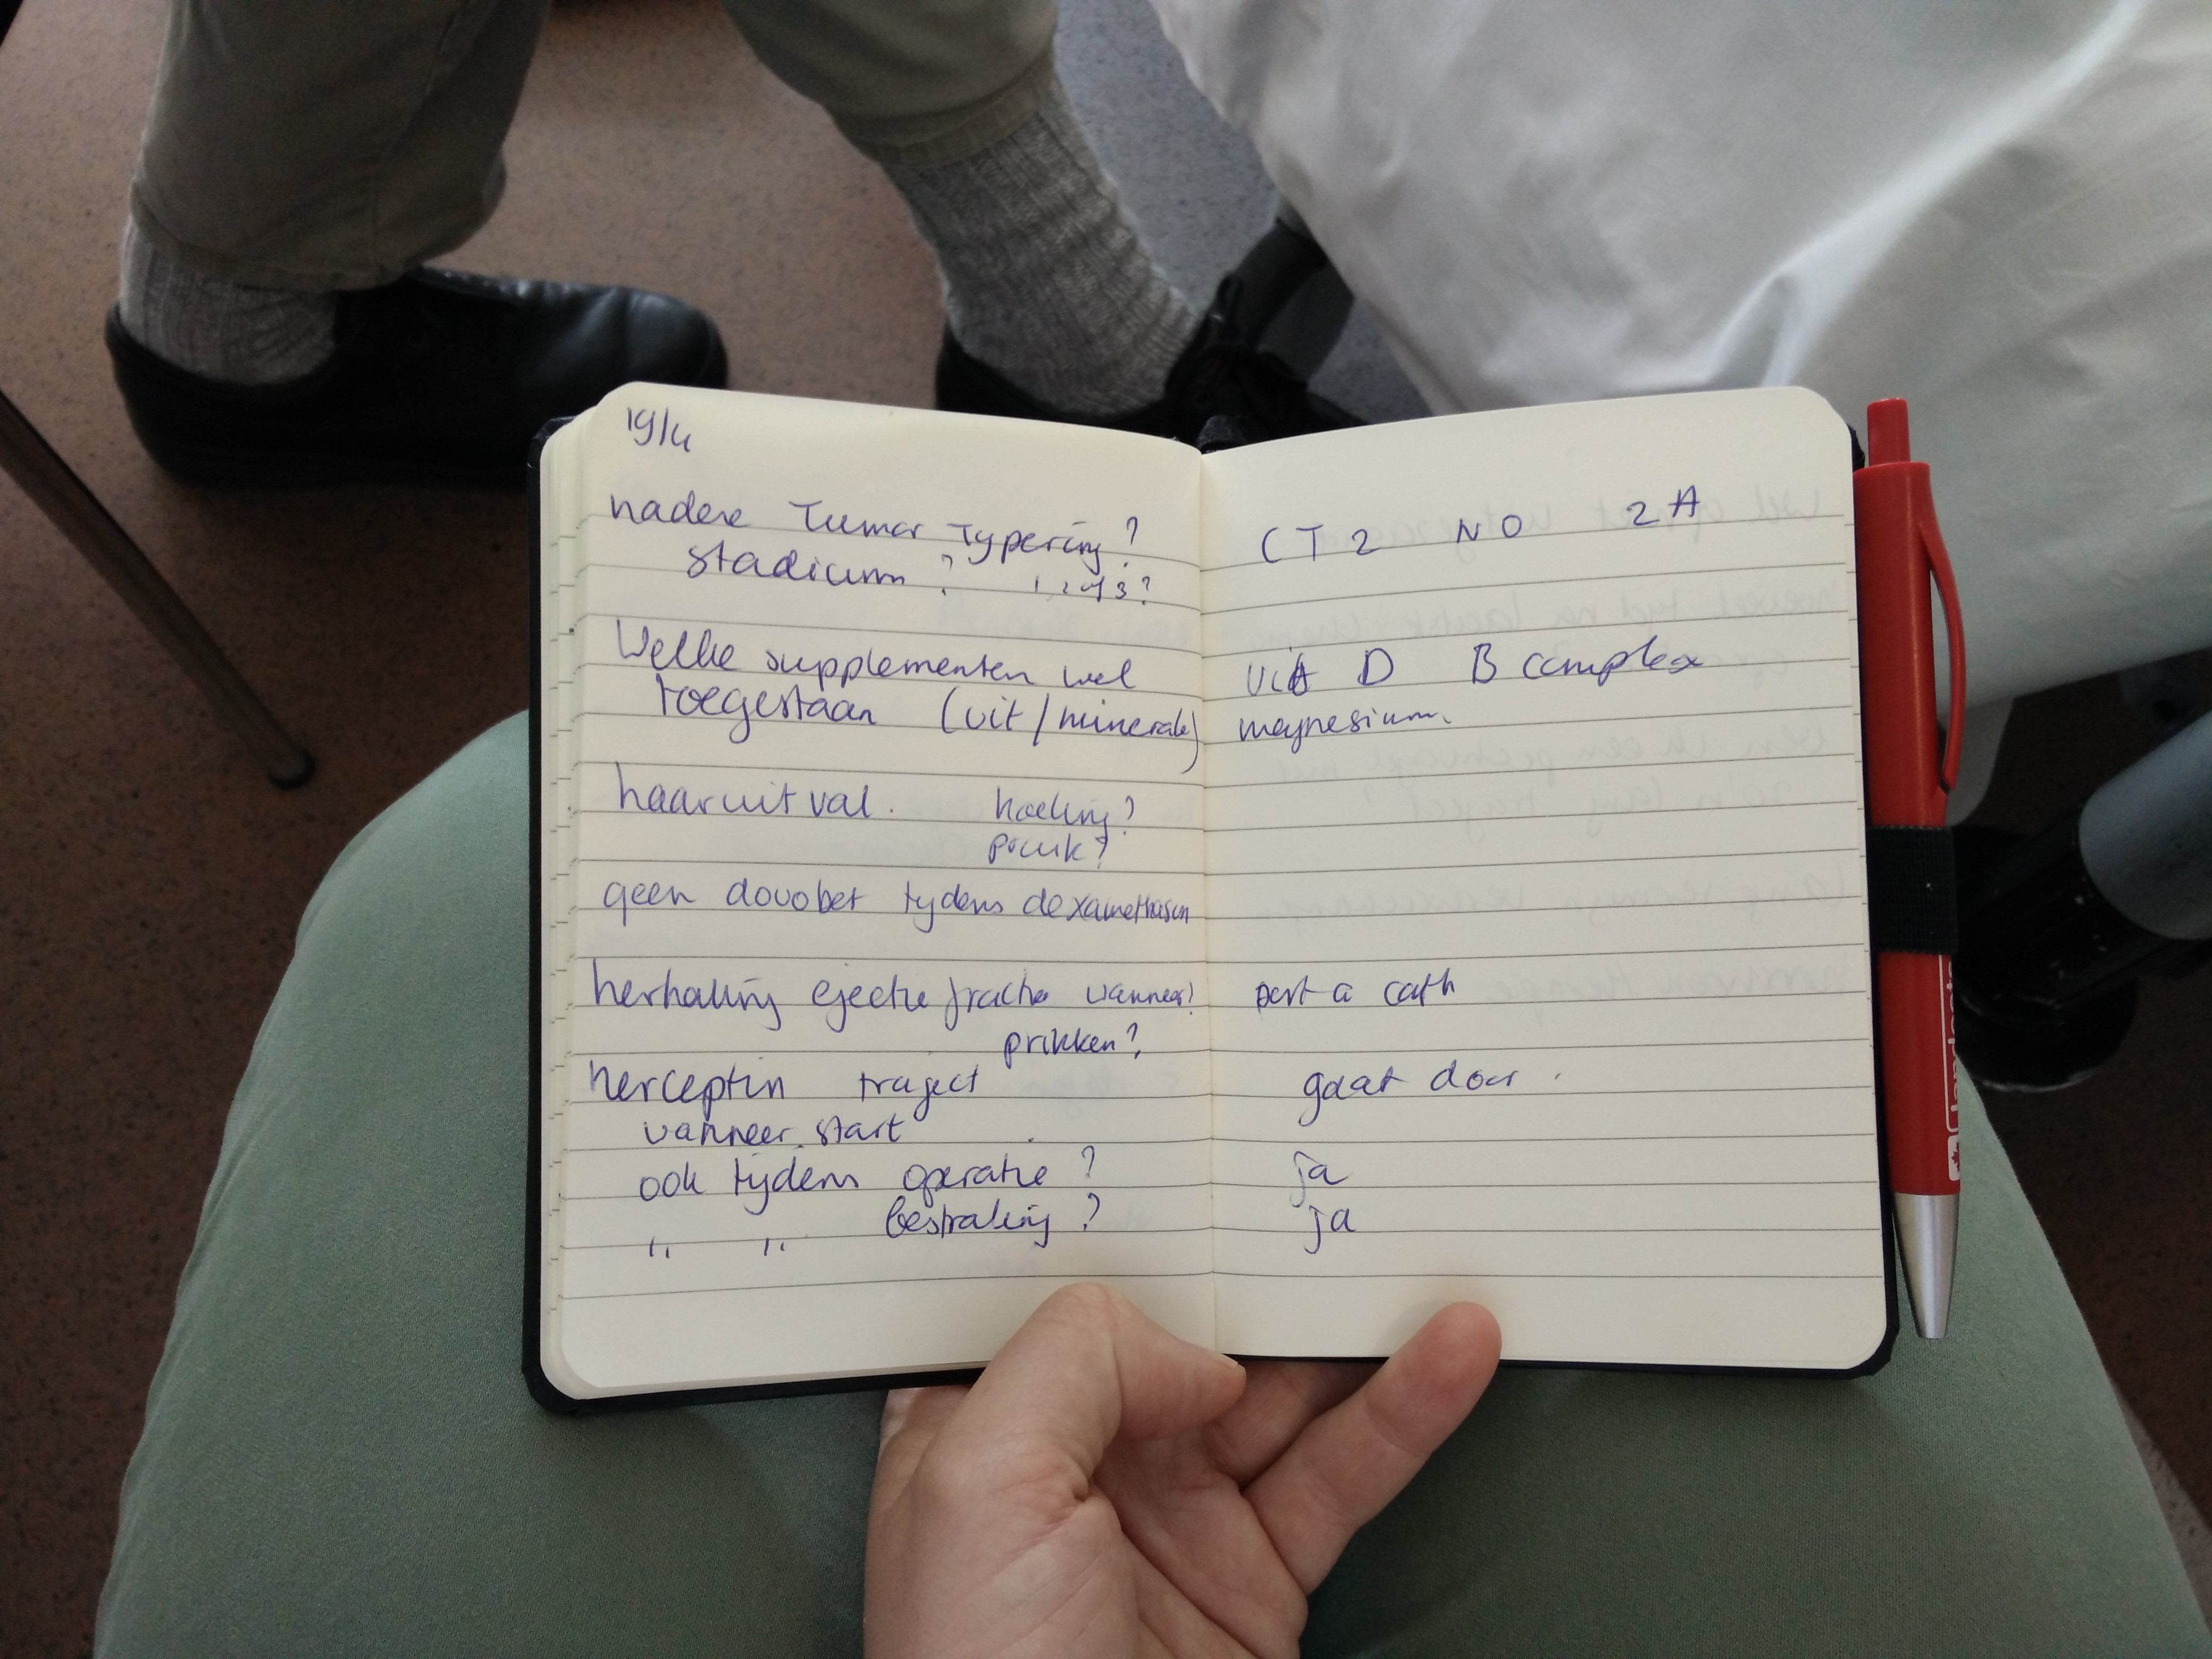 19/4
nadere Tumor Typering?
stadium? 1, 2 of 3?
Welke supplementen wel
toegestaan (vit/mineral)
haaruitval. koeling?
pruik?
geen dovobet tydens dexamethason
herhaling ejectie fractie wanneer?
prikken?
herceptin traject
wanneer start
ook tijdens operatie?
" " bestraling?
CT2 N0 2A
vit D B complex
magnesium.
port a cath
gaat door.
ja
ja